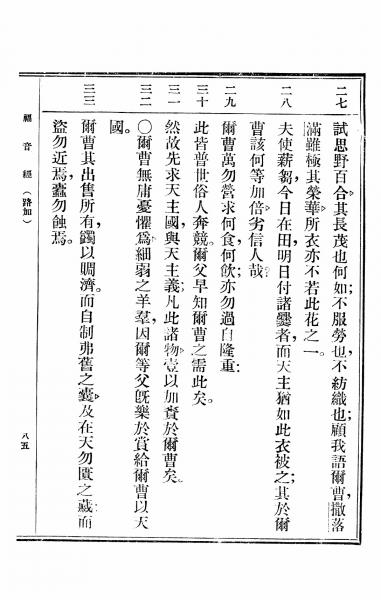 二七 試思野百合其長茂也何如；不服勞也，不紡織也；顧我語爾曹，撒落
滿雖極其榮華所衣亦不若此花之一。
二八 夫使薪芻今日在田，明日付諸爨者，而天主猶如此衣被之；其於爾
曹該何等加倍，劣信人哉。
二九 爾曹萬勿營求何食，何飲；亦勿過自隆重；
三十 此皆普世俗人奔競。爾父早知爾曹之需此矣。
三一 然故先求天主國，與天主義；凡此諸物壹以加賚於爾曹矣。
三二 〇爾曹無庸憂懼爲細弱之羊羣，因爾等父旣樂於賞給爾曹以天
國。
三三 爾曹其出售所有，蠲以賙濟。而自制弗舊之囊，及在天勿匱之藏；而
盜勿近焉，蠹勿蝕焉。
福音經（路加）
八五